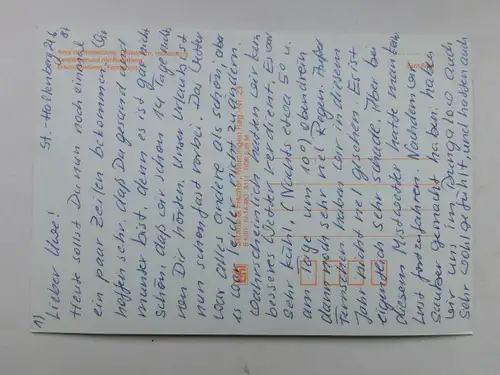 1) St.-Hallenberg 24.6.
Lieber Uwe!
Heute sollst Du nun noch einmal
ein paar Zeilen bekommen. Wir
hoffen sehr, daß Du gesund und
munter bist, denn es ist gar nicht
schön daß wir schon 14 Tage nichts
von Dir hörten. Unser Urlaub ist
nun schon fast vorbei. Das Wetter
war alles andere als schön, aber
es war ja nicht zu ändern.
Wahrscheinlich hatten wir kein
besseres Wetter verdient. Es war
sehr kühl, (Nachts etwa 5° u.
am Tage um 10°) obendrein
dann noch sehr viel Regen. Außer
Tannen haben wir in diesem
Jahr nicht viel gesehen. Es ist
eigentlich sehr schade. Aber bei
diesem Mistwetter hatte man keine
Lust fortzufahren. Nachdem wir
sauber gemacht haben, haben
wir uns im Bungalow auch
sehr wohl gefühlt, und haben auch